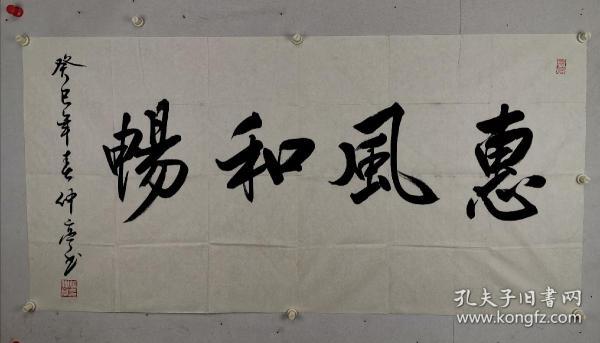 惠風和暢
癸巳年春仲亭书
孔夫子旧書网
www.kongfz.com